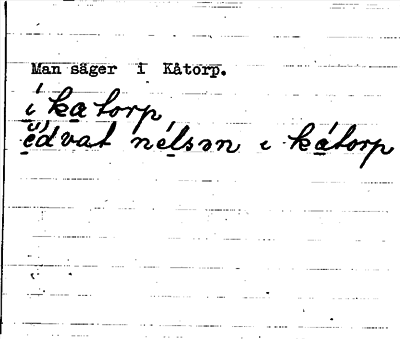 Man säger i Kåtorp.
í ka torp
édvat nélsən i kátorp